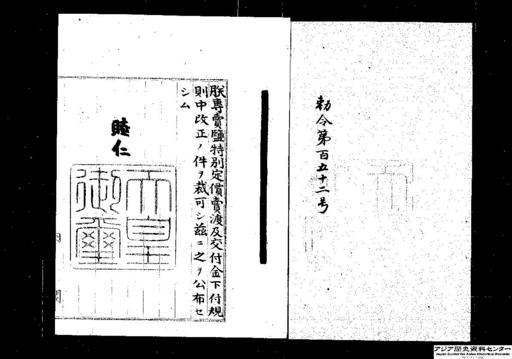 勅令第百五十二号
朕專賣鹽特別定價賣渡及交付金下付規
則中改正ノ件ヲ裁可シ茲ニ之ヲ公布セ
シム
睦仁
天皇
御璽
アジア歴史資料センター
Japan Center for Asian Historical Records